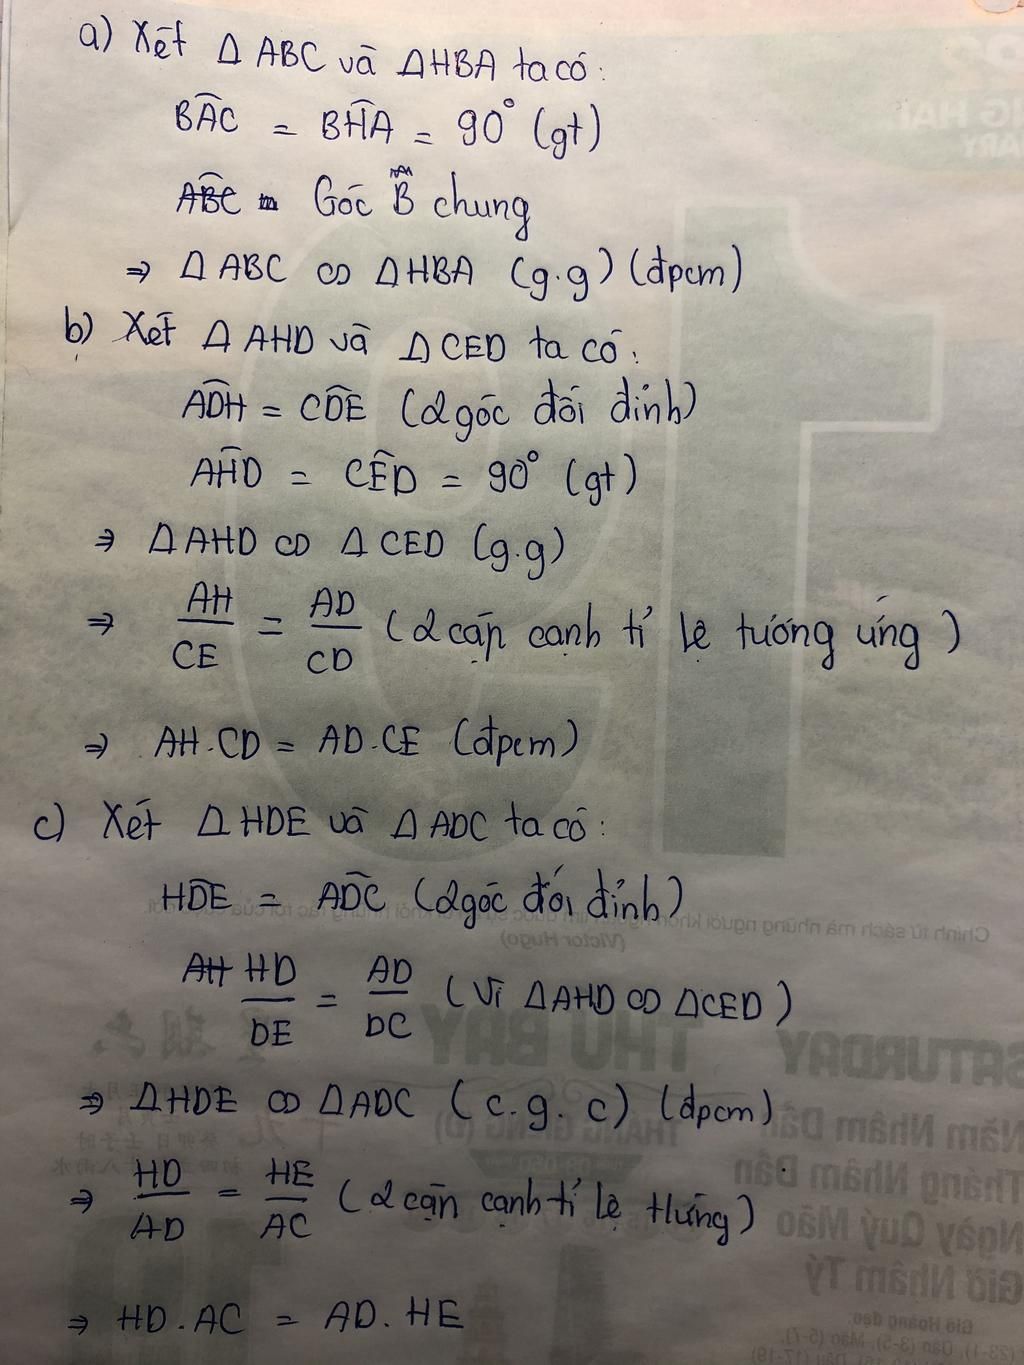 a) Xét Δ ABC và ΔHBA ta có:
BÂC = BĤA = 90° (gt)
Góc B̂ chung
⇒ Δ ABC ∽ ΔHBA (g.g) (đpcm)
b) Xét Δ AHD và Δ CED ta có:
AD̂H = CD̂E (2 góc đối đỉnh)
AĤD = CÊD = 90° (gt)
⇒ ΔAHD ∽ Δ CED (g.g)
⇒ AH/CE = AD/CD (2 cặp cạnh tỉ lệ tướng ứng)
⇒ AH.CD = AD.CE (đpcm)
c) Xét Δ HDE và Δ ADC ta có:
HD̂E = AD̂C (2 góc đối đỉnh)
HD/DE = AD/DC (Vì ΔAHD ∽ ΔCED)
⇒ ΔHDE ∽ ΔADC (c.g.c) (đpcm)
⇒ HD/AD = HE/AC (2 cặp cạnh tỉ lệ tứng)
⇒ HD.AC = AD.HE
Chính từ sách mà những người khôn
(Victor Hugo)
THỨ BẢY
SATURDAY
Năm Nhâm Dần
Tháng Nhâm Dần
Ngày Quý Mão
Giờ Nhâm Tý
Giờ Hoàng đạo